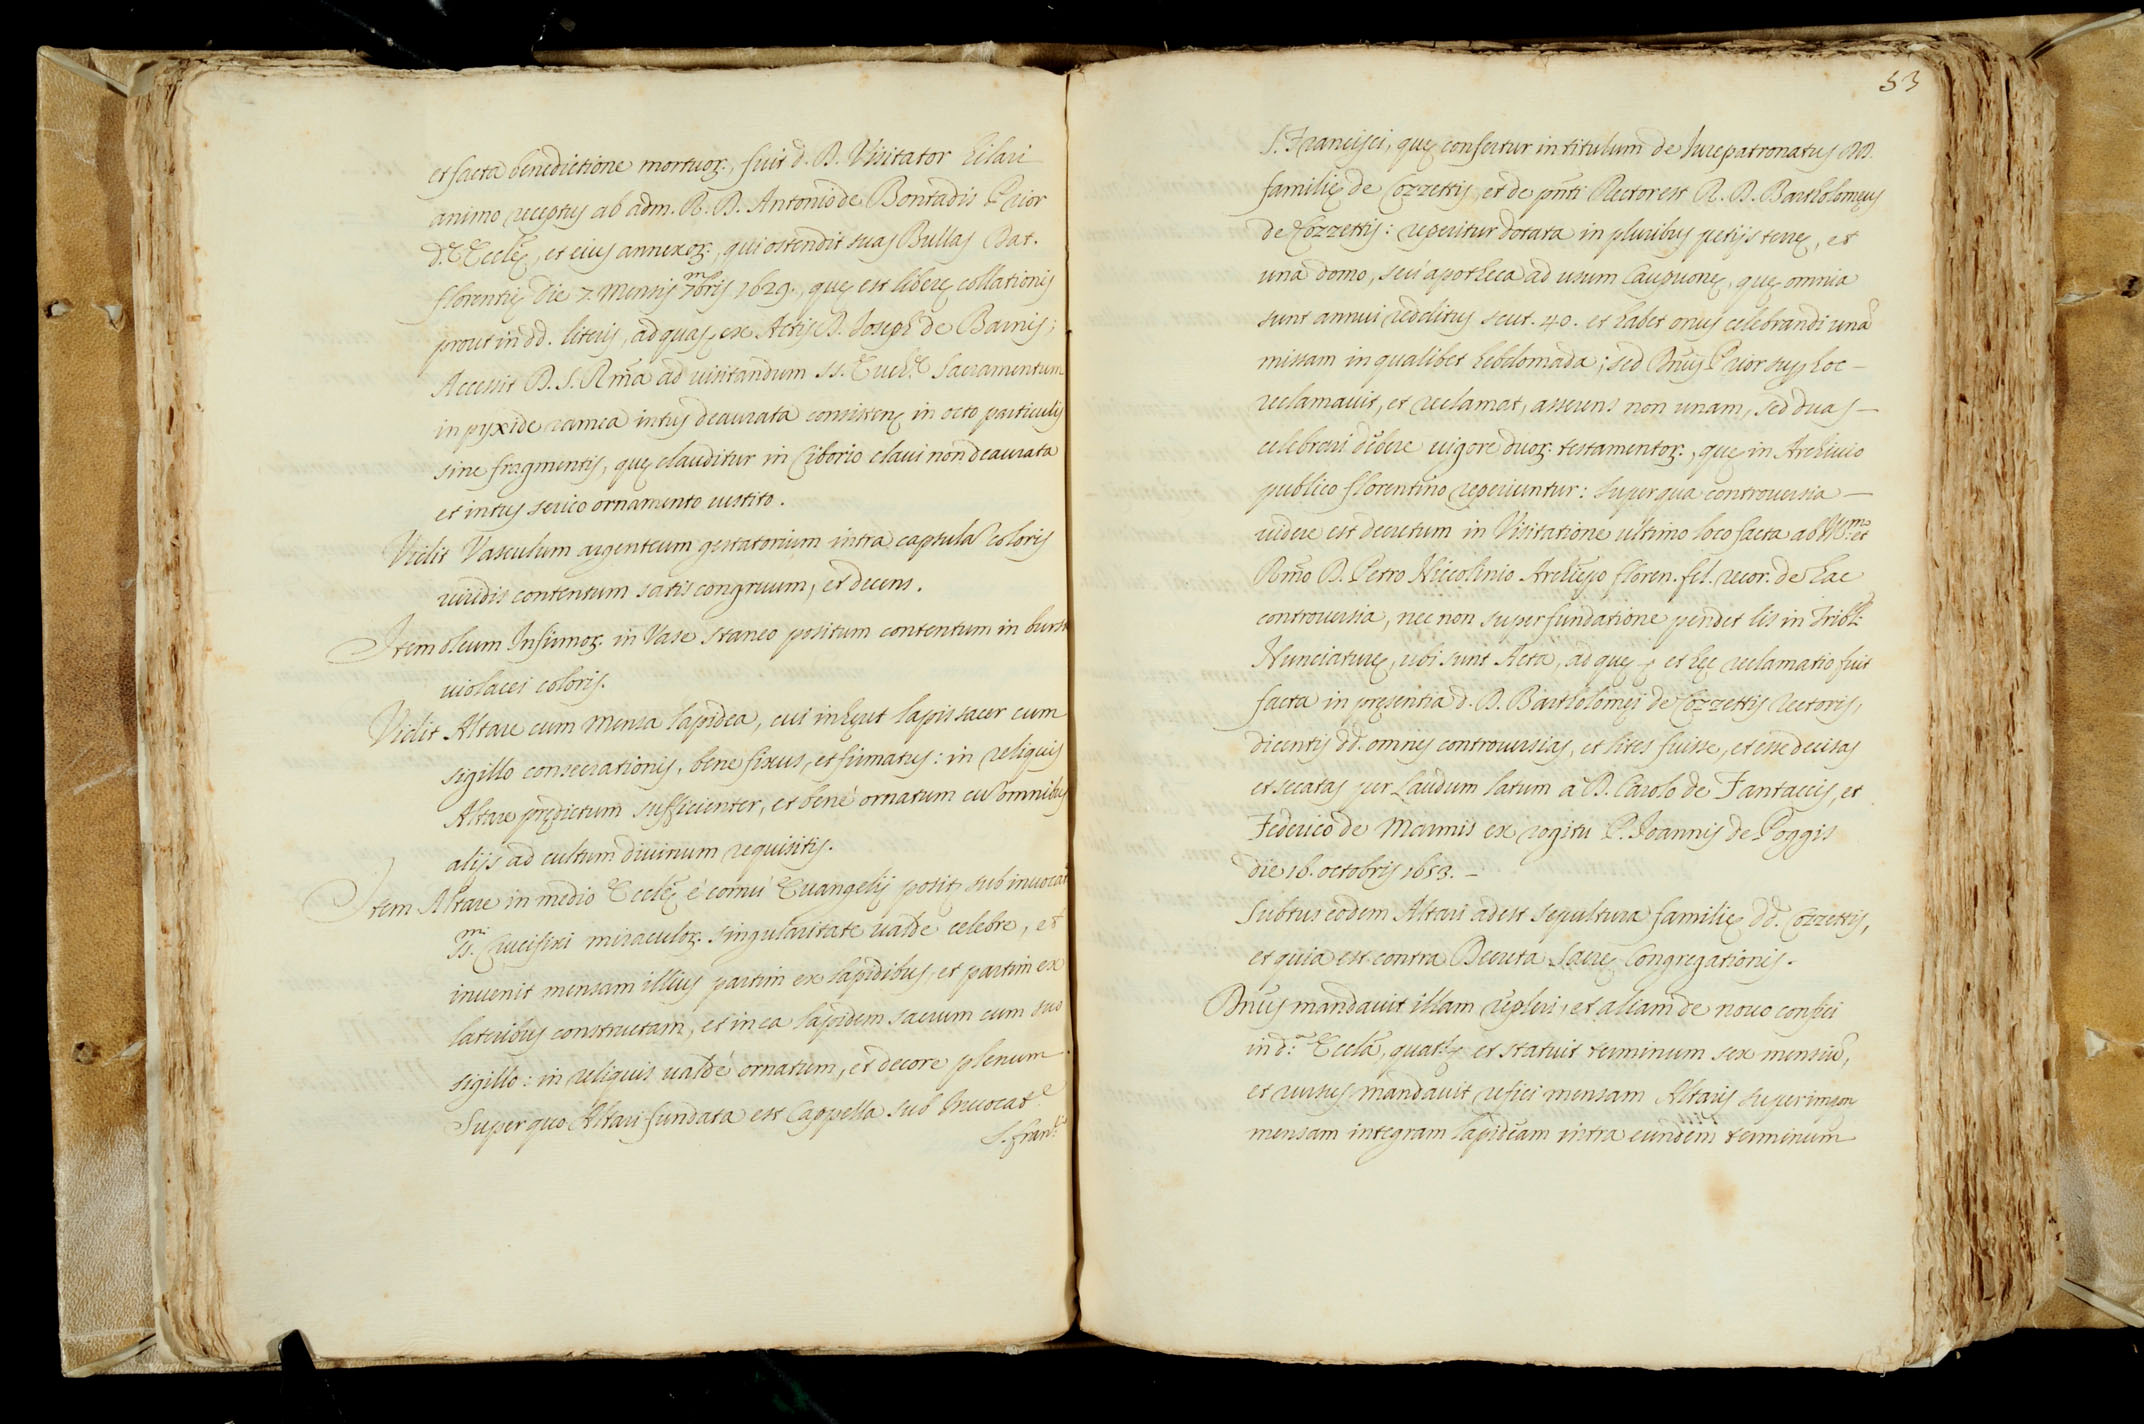 et facta benedictione mortuoꝝ:, fuit d. D. Visitator hilari
animo receptus ab adm. R. D. Antonio de Bontadis Prior
d.ę Ecclę, et eius annexoꝝ:, qui ostendit suas Bullas Dat.
florentię die 7. mensis 7mbris 1629., quę est liberę collationis
prout in dd. literis, ad quas, ex Actis D. Joseph de Barnis;
Accessit D. S. Rma ad visitandum SS. Euch.ę Sacramentum
in pyxide ramea intus deaurata consistens in octo particulis
sine fragmentis, quę clauditur in Ciborio claui non deaurata
et intus serico ornamento vestito.
Vidit Vasculum argenteum gestatorium intra captula coloris
viridis contentum satis congruum, et decens.
Item oleum Infirmoꝝ. in Vase staneo positum contentum in bursa
uiolacei coloris.
Vidit Altare cum Mensa lapidea, cui inhęret lapis sacer cum
sigillo consecrationis, bene fixus, et firmatus: in reliquis
Altare prędictum sufficienter, et bené ornatum cũ omnibus
alijs ad cultum diuinum requisitis.
Item Altare in medio Ecclę é cornu Euangelij posit, sub inuocat
SS.mi Crucifixi miraculoꝝ. singularitate ualde celebre, et
inuenit mensam illius partim ex lapidibus, et partim ex
lateribus constructam, et in ea lapidem sacrum cum suo
sigillo: in reliquis ualdé ornatum, et decore plenum.
Super quo Altari fundata est Cappella sub Inuocat.e
S. fran.ci
53
S. Francisci, quę confertur in titulum de Iurepatronatus DD.
familię de Cozzettis, et de pñti Rector est R. D. Bartholomęus
de Cozzettis: reperitur dotata in pluribus petijs terrę, et
una domo, seú apotheca ad usum Cauponę, quę omnia
sunt annui redditus scut. 40. et habet onus celebrandi unã
missam in qualibet hebdomada; sed Dnus Prior sup. hoc —
reclamauit, et reclamat, asserens non unam, sed duas —
celebrari debere uigore duoꝝ: testamentoꝝ:, quę in Archiuio
publico florentino reperiuntur: super qua controuersia —
uidere est decretum in Visitatione ultimo loco facta ab Illmo: et
Rmo D. Petro Niccolinio Archiepo floren. fel. recor. de hac
controuersia, nec non super fundatione pendet lis in Tribli
Nunciaturę, ubi sunt Acta, ad quę, et hęc reclamatio fuit
facta in pręsentia d. D. Bartholomęi de Cozzettis Rectoris,
dicentis dd. omnes controuersias, et lites fuisse, et esse decisas
et secatas per Laudum latum á D. Carolo de Fantaccis, et
Federico de Marmis ex rogitu P. Ioannis de Poggis
die 18. octobris 1653. —
Subtus eodem Altari adest sepultura familię dd. Cozzettis,
et quia est contra Decreta Sacrę Congregationis.
Dnus mandauit illam repleri, et aliam de nouo confici
in d.a Ecclã, et statuit terminum sex mensiũ,
et rursus mandauit refici mensam Altaris
mensam integram lapideam intra eundem terminum